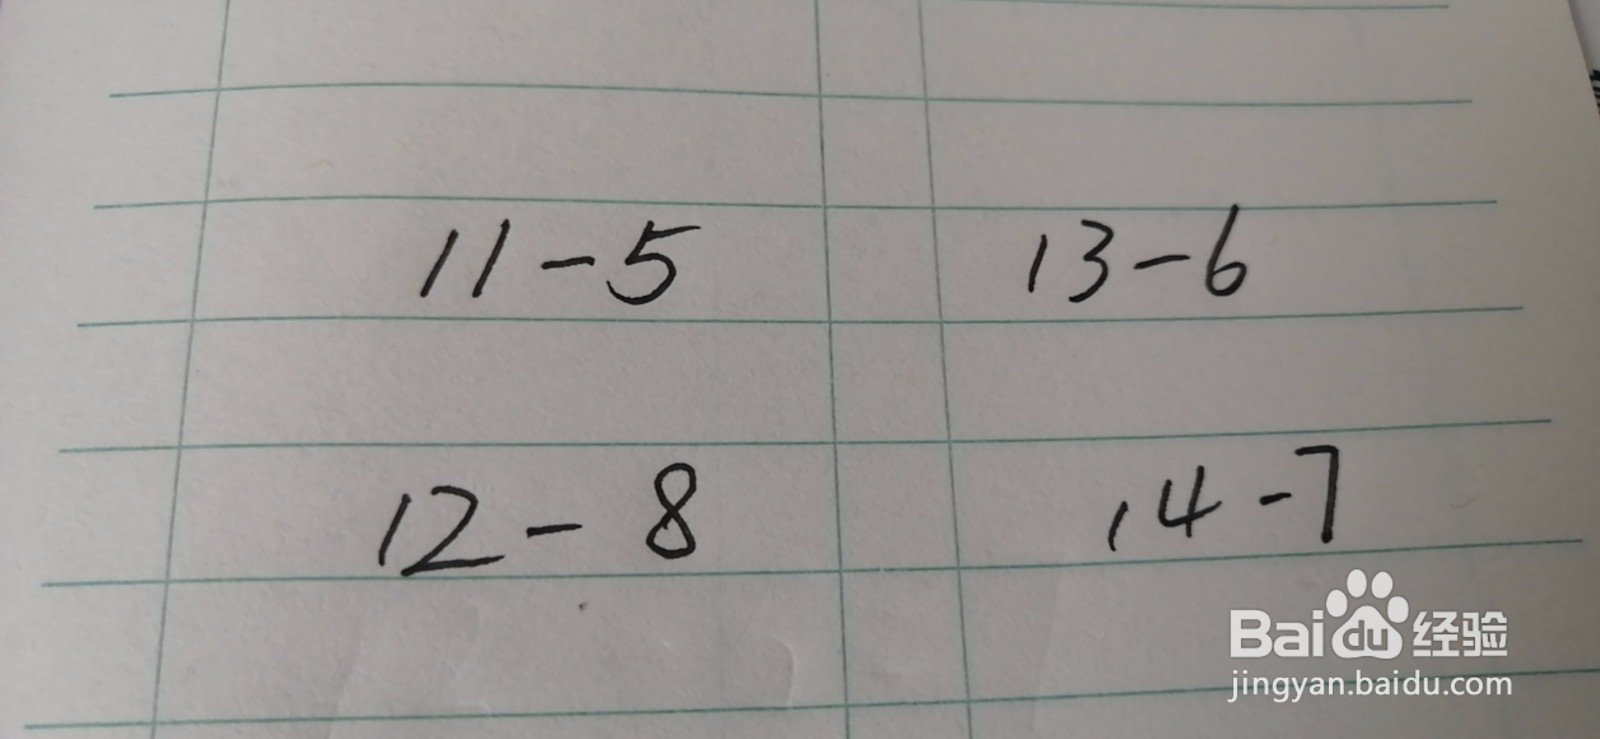 11-5 13-6
12-8 14-7
Baidu经验
jingyan.baidu.com